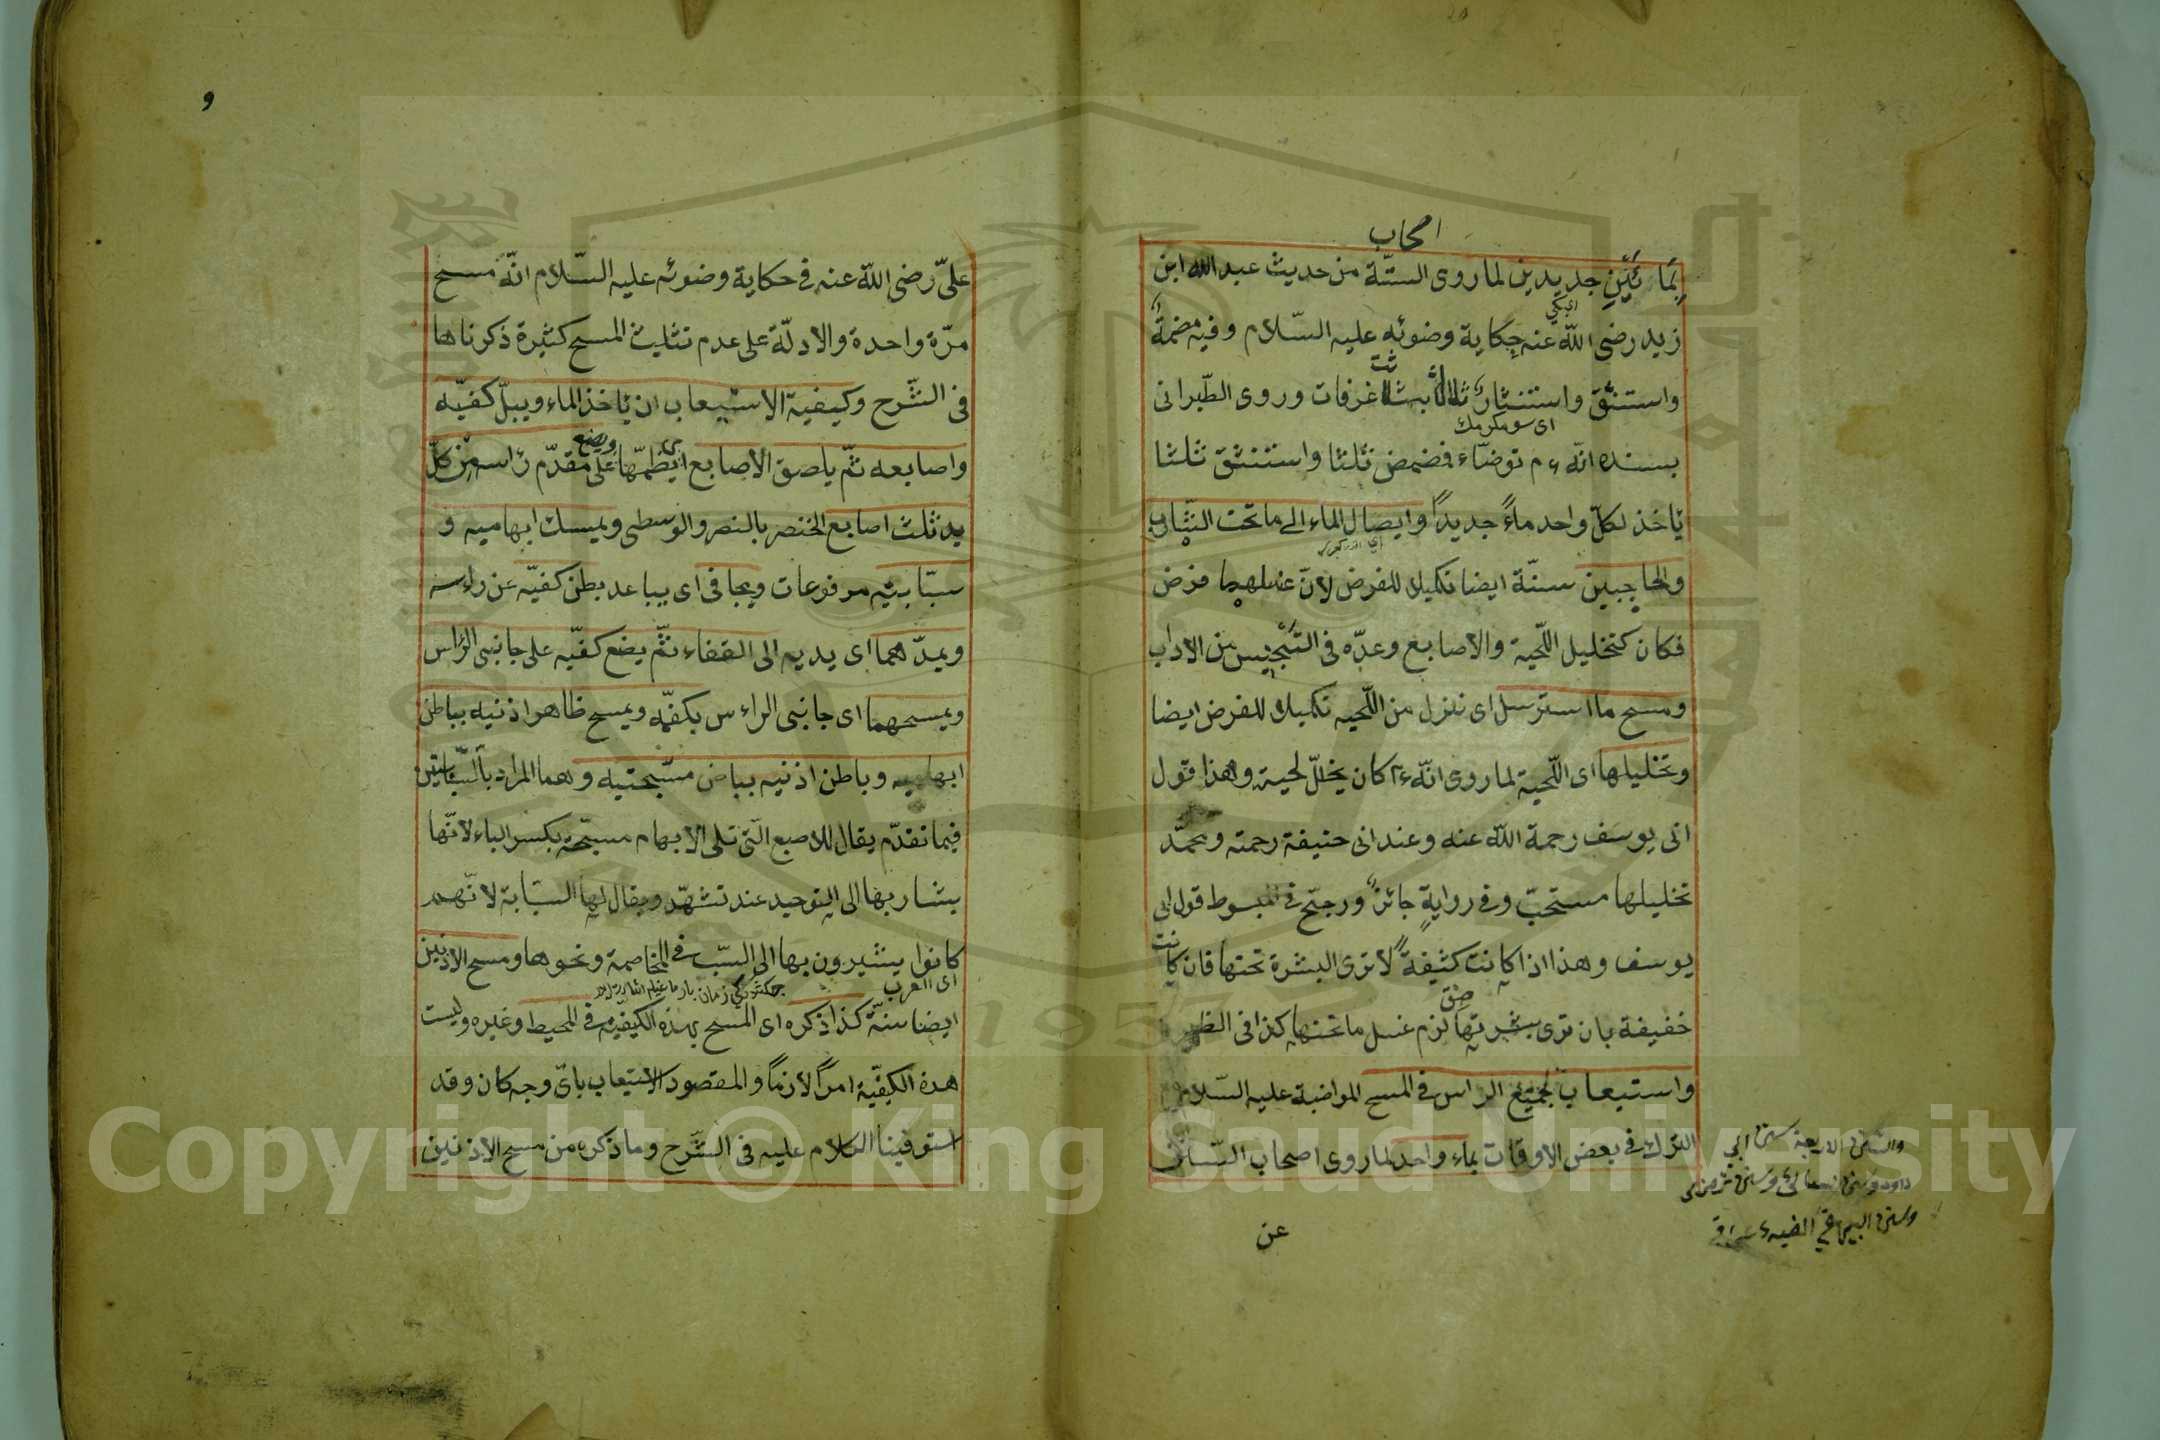 اصحاب
بماءين جديدين لما روى الستّة من حديث عبد الله ابن
زيد رضى الله عنه حكاية وضوئه عليه السّلام وفيه مضمة
واستنثق واستنثار ثلاثا بثلث غرفات وروى الطّبرانى
اى سومكرمك
بسنده انّه ءم توضّاء فضمض ثلثا واستنثق ثلثا
ياخذ لكلّ واحد ماءً جديداً وايصال الماء الے ما تحت الشّارب
والحاجبين سنّة ايضا تكميلا للفرض لانّ غسلهما فرض
فكان كتخليل اللّحية والاصابع وعدّه فى التّجنيس من الاداب
ومسح ما استرسل اى نزل من اللّحيه تكميلا للفرض ايضا
وتخليلها اى اللّحية لما روى انّه ءم كان يخلّل لحيته وهذا قول
ابى يوسف رحمة الله عنه وعند ابى حنيفة رحمته ومحمّد
تخليلها مستحبّ وفى رواية جائز ورجّح فى المبسوط قول ابى
يوسف وهذا اذا كانت كثيفة لا ترى البشرة تحتها فان كانت
خفيفة بان ترى بشرتها لزم غسل ما تحتها كذا فى
واستيعاب لجميع الراس فى المسح للمواضبة عليه السّلام
الترك فى بعض الاوقات بماء واحد لما روى اصحاب السّنن
والسنن الاربعة سنن ابي
داود وسنن نسائي وسنن ترمزى
وسنن البيهقي
عن
و
علىّ رضى الله عنه فى حكاية وضوئه عليه السّلام انّه مسح
مرّة واحدة والادلّة على عدم تثليث المسح كثيرة ذكرناها
فى الشّرح وكيفيّة الاستيعاب ان ياخذ الماء ويبلّ كفّيه
واصابعه ثمّ يلصق الاصابع اى يضمّها ويضع على مقدّم راسه من كلّ
يد ثلث اصابع الخنصر بالنصر والوسطى ويمسك ابهاميه و
سبّابتيه مرفوعات ويجافى اى يباعد بطن كفيّه عن راءسه
ويمدّهما اى يديه الى القفاء ثمّ يضع كفّيه على جانبى الرّاس
ويمسحهما اى جانبى الراءس بكفّيه ويمسح ظاهر اذنيه بباطن
ابهاميه وباطن اذنيه بباض مسّبحتيه وهما المراد بالسّبّابتين
فيما تقدّم يقال للاصبع الّتى تلى الابهام مسبّحة بكسر الباء لانّها
يشار بها الى التوحيد عند تشهّد ويقال لها السبّابة لانّهم
كانوا يشيرون بها الى السّبّ فى المخاصمة ونحوها ومسح الاذنين
اى العرب
ايضا سنّة كذا ذكره اى المسح بهذه الكيفيّة فى المحيط وغيره وليست
هذه الكيفيّة امراً لازماً والمقصود الاستيعاب باىّ وجه كان وقد
استوفينا الكلام عليه فى الشّرح وما ذكره من مسح الاذنين
Copyright © King Saud University
1957